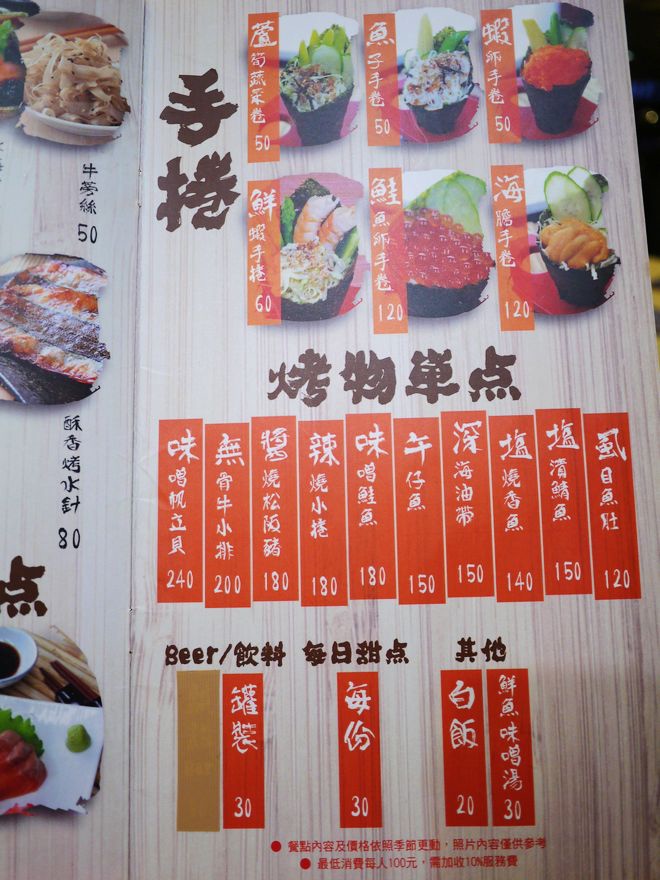 牛蒡絲
50
酥香烤水針
80
点
手捲
蘆筍蔬菜卷
50
魚子手卷
50
蝦卵手卷
50
鮮蝦手捲
60
鮭魚卵手卷
120
海膽手卷
120
烤物單点
味噌帆立貝
240
無骨牛小排
200
醬燒松阪豬
180
辣燒小捲
180
味噌鮭魚
180
午仔魚
150
深海油帶
150
塩燒香魚
140
塩漬鯖魚
150
虱目魚肚
120
Beer/飲料
罐裝
30
每日甜点
每份
30
其他
白飯
20
鮮魚味噌湯
30
● 餐點內容及價格依照季節更動，照片內容僅供參考
● 最低消費每人100元，需加收10%服務費